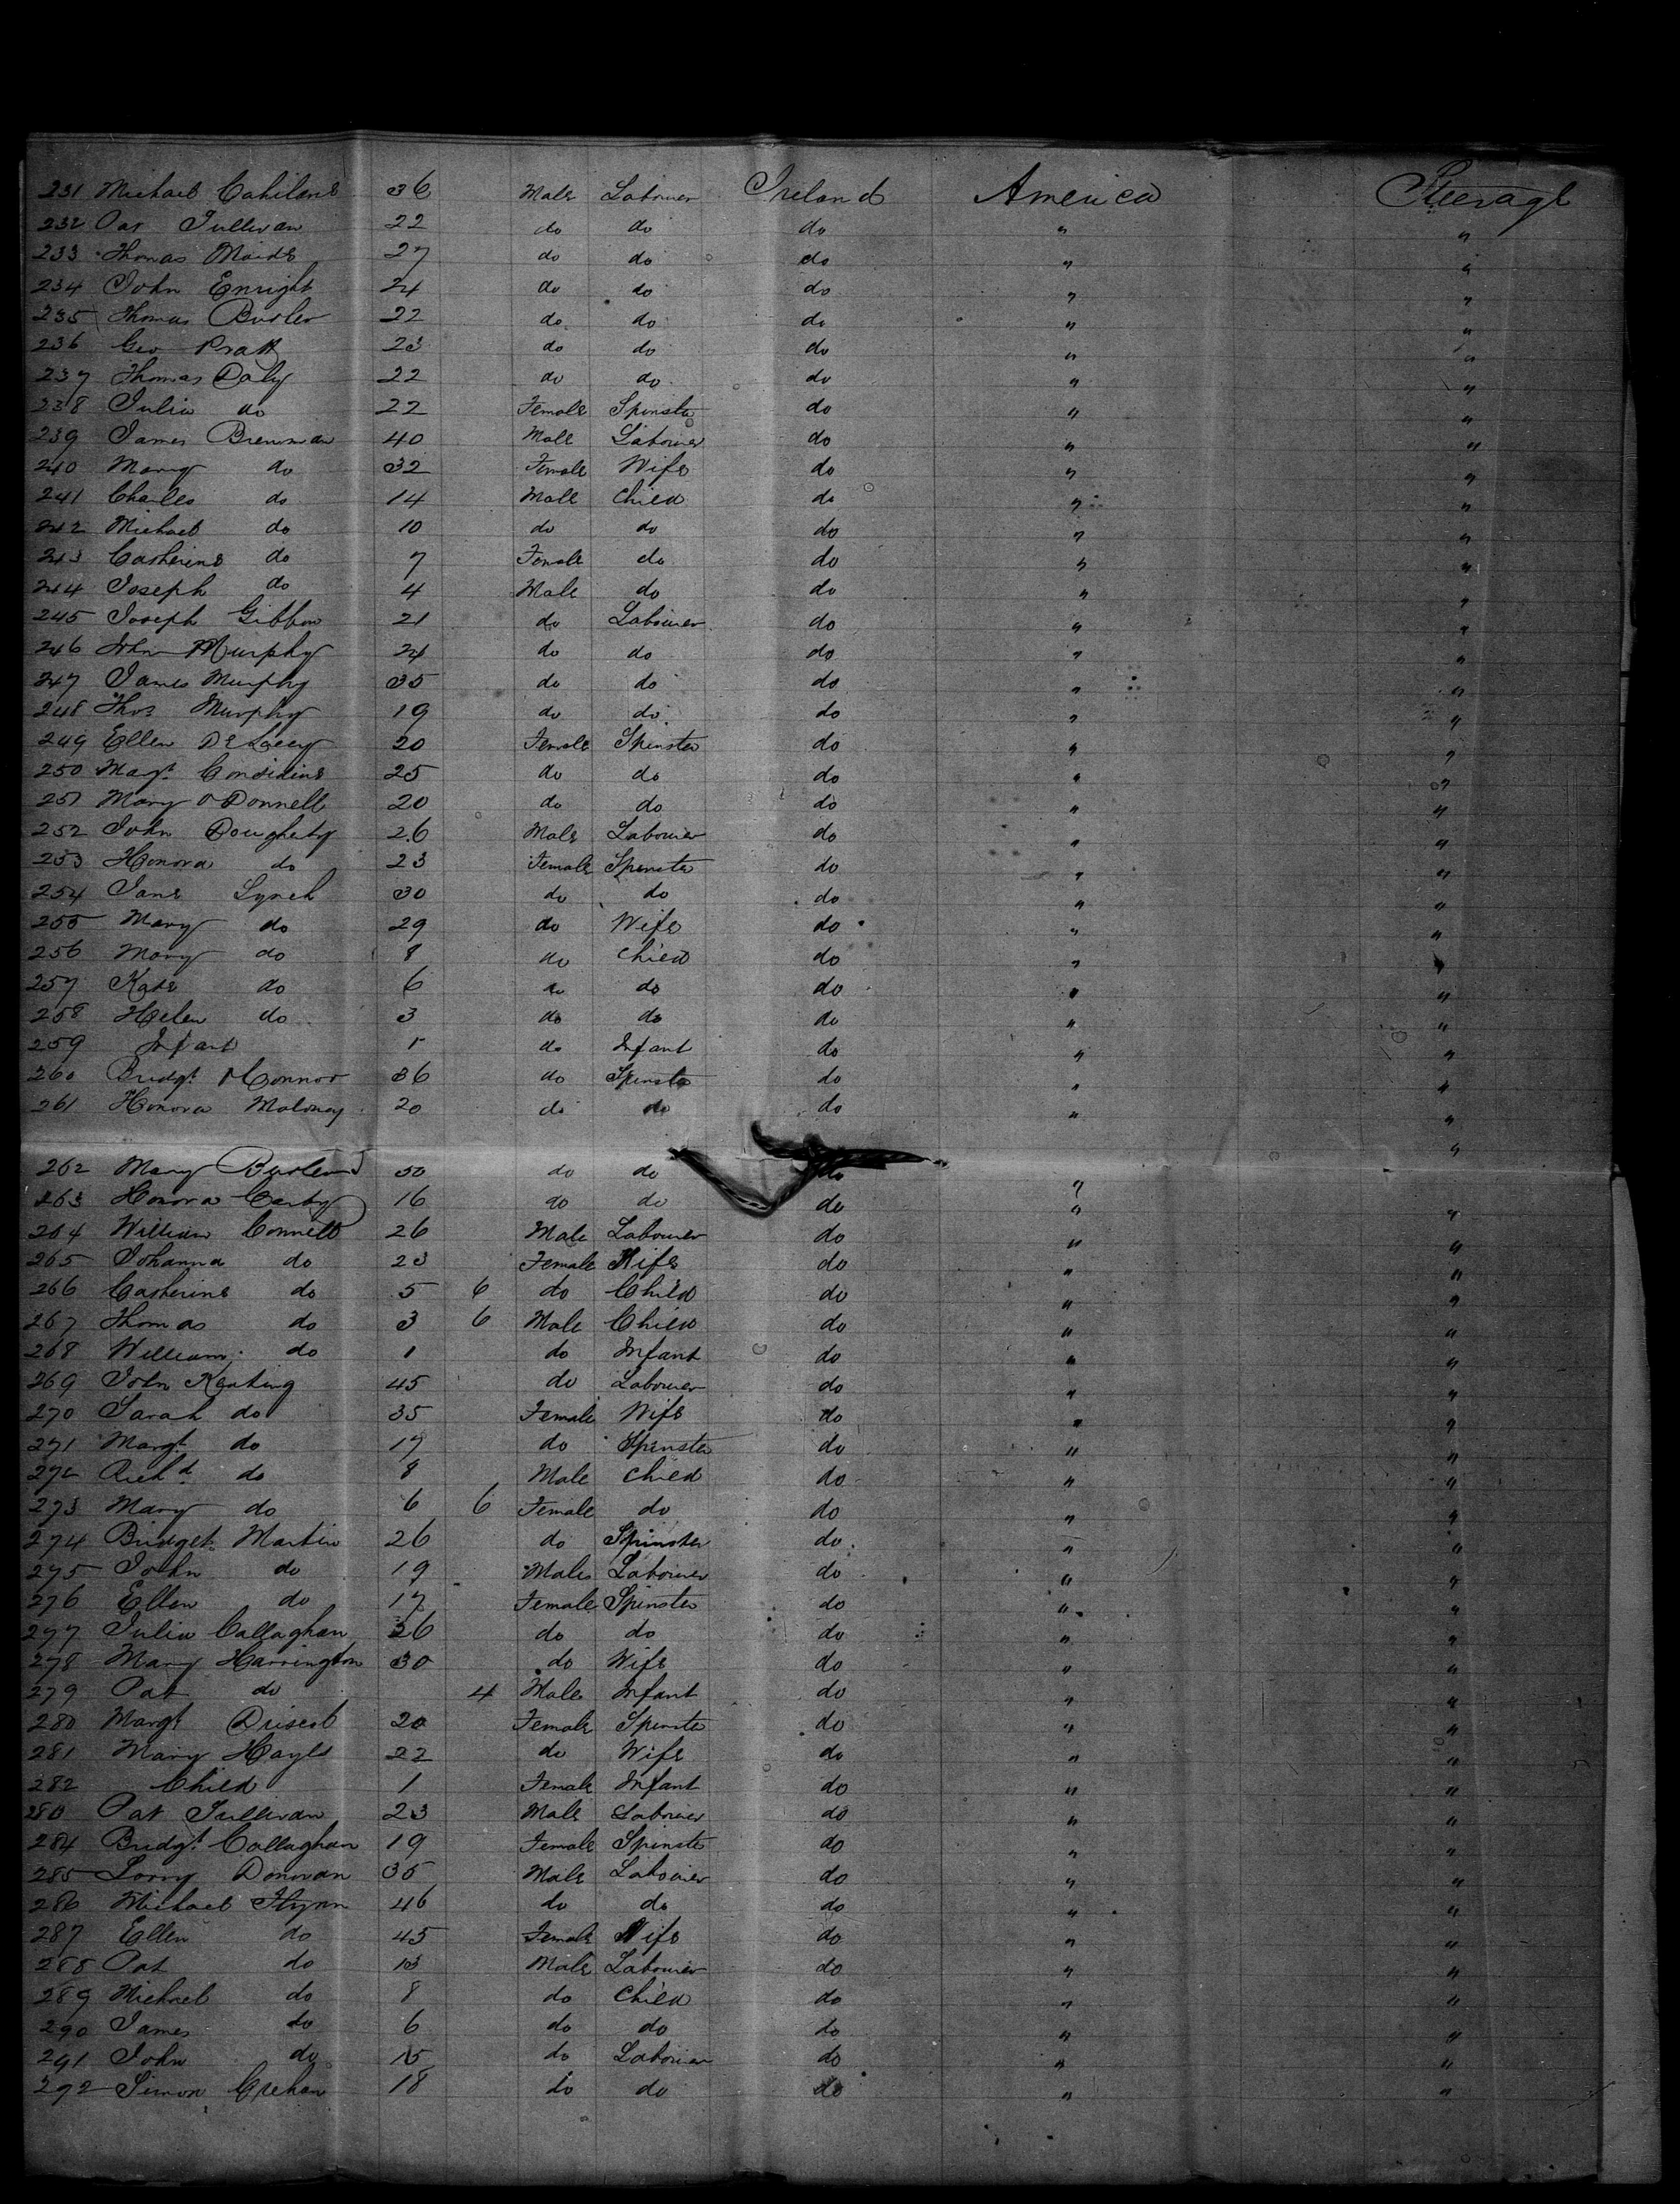 231 Michael 36 Male Labourer Ireland America Steerage
232 Pat Sullivan 22 do do do " "
233 Thomas 27 do do do " "
234 John Enright 24 do do do " "
235 Thomas Butler 22 do do do " "
236 Geo Pratt 23 do do do " "
237 Thomas Daly 22 do do do " "
238 Julia do 22 Female Spinster do " "
239 James Brennan 40 Male Labourer do " "
240 Mary do 32 Female Wife do " "
241 Charles do 14 Male Child do " "
242 Michael do 10 do do do " "
243 Catherine do 7 Female do do " "
244 Joseph do 4 Male do do " "
245 Joseph Gibbon 21 do Labourer do " "
246 John Murphy 24 do do do " "
247 James Murphy 35 do do do " "
248 Thos Murphy 19 do do do " "
249 Ellen DeLacey 20 Female Spinster do " "
250 Margt Considine 25 do do do " "
251 Mary O Donnell 20 do do do " "
252 John Dougherty 26 Male Labourer do " "
253 Honora do 23 Female Spinster do " "
254 Jane Lynch 30 do do do " "
255 Mary do 29 do Wife do " "
256 Mary do 8 do Child do " "
257 Kate do 6 do do do " "
258 Helen do 3 do do do " "
259 Infant 1 do Infant do " "
260 Bridgt OConnor 36 do Spinster do " "
261 Honora Moloney 20 do do do " "
262 Mary 50 do do do " "
263 Honora 16 do do do " "
264 William Connell 26 Male Labourer do " "
265 Johanna do 23 Female Wife do " "
266 Catherine do 5 6 do Child do " "
267 Thomas do 3 6 Male Child do " "
268 William do 1 do Infant do " "
269 John Keating 45 do Labourer do " "
270 Sarah do 35 Female Wife do " "
271 Margt do 17 do Spinster do " "
272 Richd do 8 Male Child do " "
273 Mary do 6 6 Female do do " "
274 Bridget Martin 26 do Spinster do " "
275 John do 19 Male Labourer do " "
276 Ellen do 17 Female Spinster do " "
277 Julia Callaghan 36 do do do " "
278 Mary Harrington 30 do Wife do " "
279 Pat do 4 Male Infant do " "
280 Margt 20 Female Spinster do " "
281 Mary Hayes 22 do Wife do " "
282 Child 1 Female Infant do " "
283 Pat Sullivan 23 Male Labourer do " "
284 Bridgt Callaghan 19 Female Spinster do " "
285 Donovan 35 Male Labourer do " "
286 Michael Flynn 46 do do do " "
287 Ellen do 45 Female Wife do " "
288 Pat do 13 Male Labourer do " "
289 Michael do 8 do Child do " "
290 James do 6 do do do " "
291 John do 15 do Labourer do " "
292 Simon Crehan 18 do do do " "